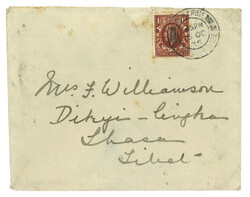 Mrs F. Williamson
Dikyi-lingka
Lhasa
Tibet